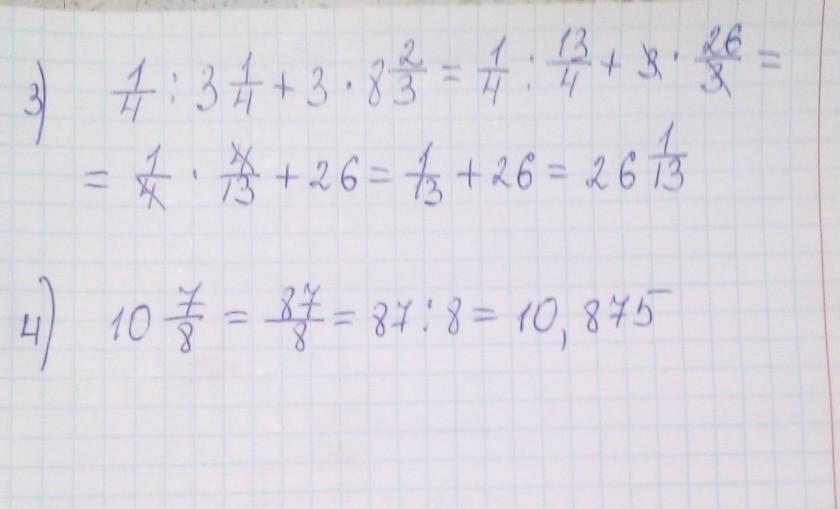 3) 1/4 : 3 1/4 + 3 · 8 2/3 = 1/4 : 13/4 + 3 · 26/3 =
= 1/4 · 4/13 + 26 = 1/13 + 26 = 26 1/13
4) 10 7/8 = 87/8 = 87 : 8 = 10,875